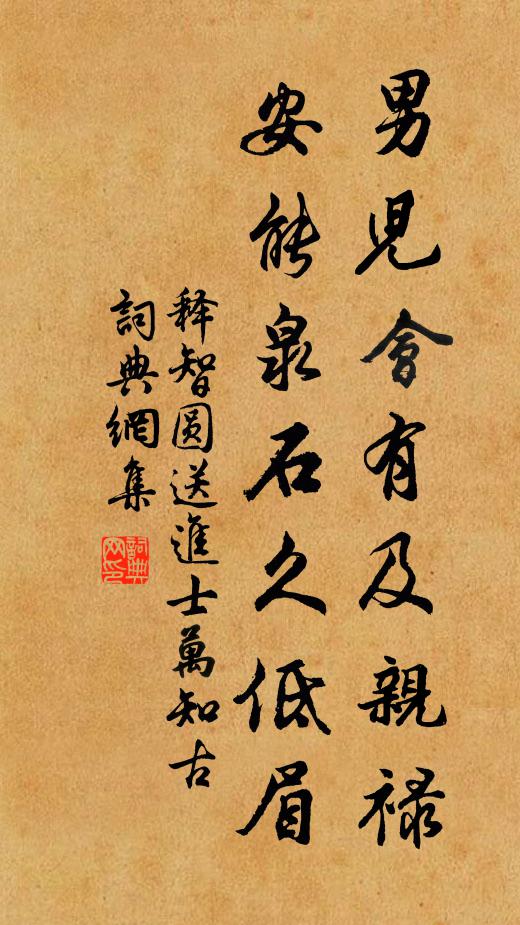 男兒會有及親祿
安能泉石久低眉
释智圆送進士萬知古
詞典網集
詞典網印